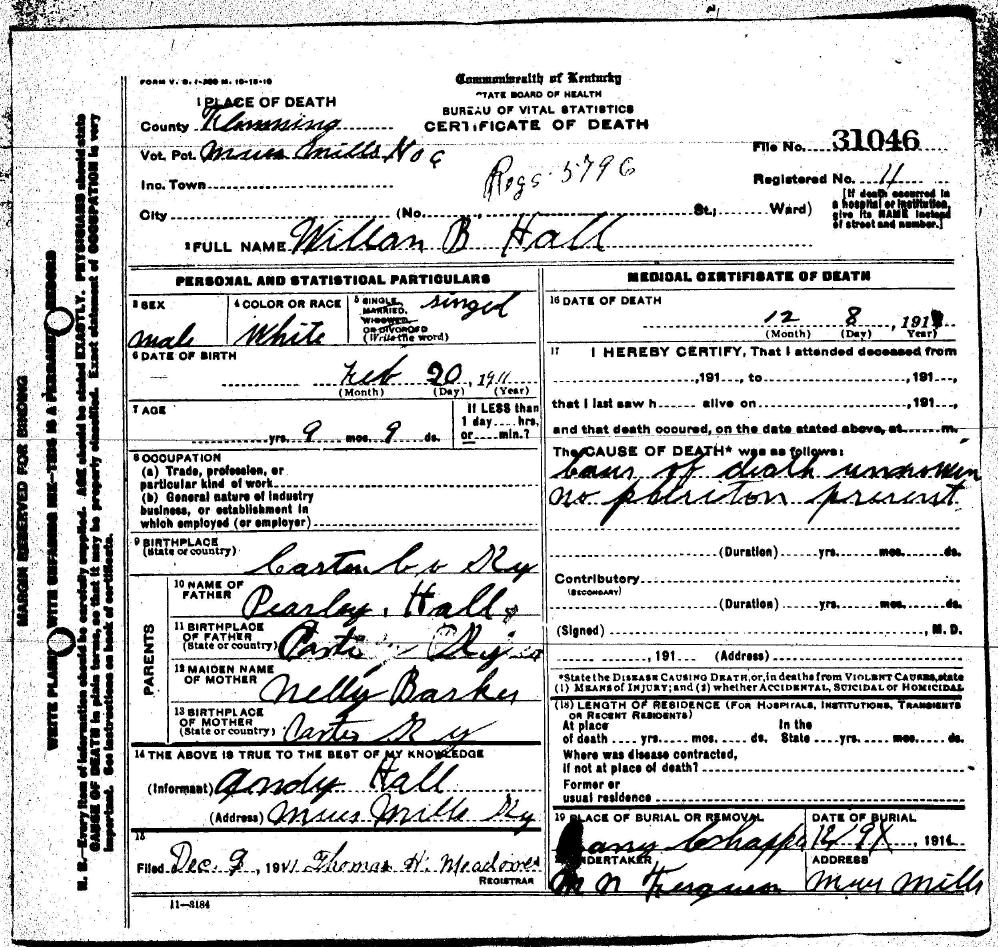 FORM V. S. 1-
Commonwealth of Kentucky
STATE BOARD OF HEALTH
BUREAU OF VITAL STATISTICS
CERTIFICATE OF DEATH
1 PLACE OF DEATH
County Flemming
Vot. Pct. Mills No 6
Inc. Town
City (No. , St.; Ward)
File No. 31046
Registered No. 11
Regs 5796
[If death occurred in
a hospital or institution,
give its NAME instead
of street and number.]
2 FULL NAME Willan B Hall
PERSONAL AND STATISTICAL PARTICULARS
3 SEX
male
4 COLOR OR RACE
White
5 SINGLE,
MARRIED,
WIDOWED,
OR DIVORCED
(Write the word)
singel
6 DATE OF BIRTH
Feb 20, 1911
(Month) (Day) (Year)
7 AGE
yrs. 9 mos. 9 ds.
If LESS than
1 day hrs.
or min.?
8 OCCUPATION
(a) Trade, profession, or
particular kind of work
(b) General nature of industry
business, or establishment in
which employed (or employer)
9 BIRTHPLACE
(State or country)
Carter Co Ky
PARENTS
10 NAME OF
FATHER
Pearley Hall
11 BIRTHPLACE
OF FATHER
(State or country)
Carter
12 MAIDEN NAME
OF MOTHER
Nelly Barker
13 BIRTHPLACE
OF MOTHER
(State or country)
Carter Ky
14 THE ABOVE IS TRUE TO THE BEST OF MY KNOWLEDGE
(Informant) Andy Hall
(Address) Mills Ky
15
Filed Dec. 9, 1911 Thomas H. Meadows
REGISTRAR
11-3184
MEDICAL CERTIFICATE OF DEATH
16 DATE OF DEATH
12 8, 191
(Month) (Day) (Year)
17 I HEREBY CERTIFY, That I attended deceased from
,191 , to ,191 ,
that I last saw h alive on ,191 ,
and that death occured, on the date stated above, at m.
The CAUSE OF DEATH* was as follows:
caus of death unknowin
no present
(Duration) yrs. mos. ds.
Contributory
(SECONDARY)
(Duration) yrs. mos. ds.
(Signed) , M. D.
, 191 (Address)
*State the DISEASE CAUSING DEATH, or, in deaths from VIOLENT CAUSES, state
(1) MEANS OF INJURY; and (2) whether ACCIDENTAL, SUICIDAL or HOMICIDAL
(18) LENGTH OF RESIDENCE (FOR HOSPITALS, INSTITUTIONS, TRANSIENTS
OR RECENT RESIDENTS)
At place In the
of death yrs. mos. ds. State yrs. mos. ds.
Where was disease contracted,
if not at place of death?
Former or
usual residence
19 PLACE OF BURIAL OR REMOVAL
DATE OF BURIAL
12/9, 1911
UNDERTAKER
M N Ferguson
ADDRESS
Mills
MARGIN RESERVED FOR BINDING
WRITE PLAINLY WITH UNFADING INK—THIS IS A PERMANENT RECORD
N. B.—Every item of information should be carefully supplied. AGE should be stated EXACTLY. PHYSICIANS should state
CAUSE OF DEATH in plain terms, so that it may be properly classified. Exact statement of OCCUPATION is very
important. See instructions on back of certificate.